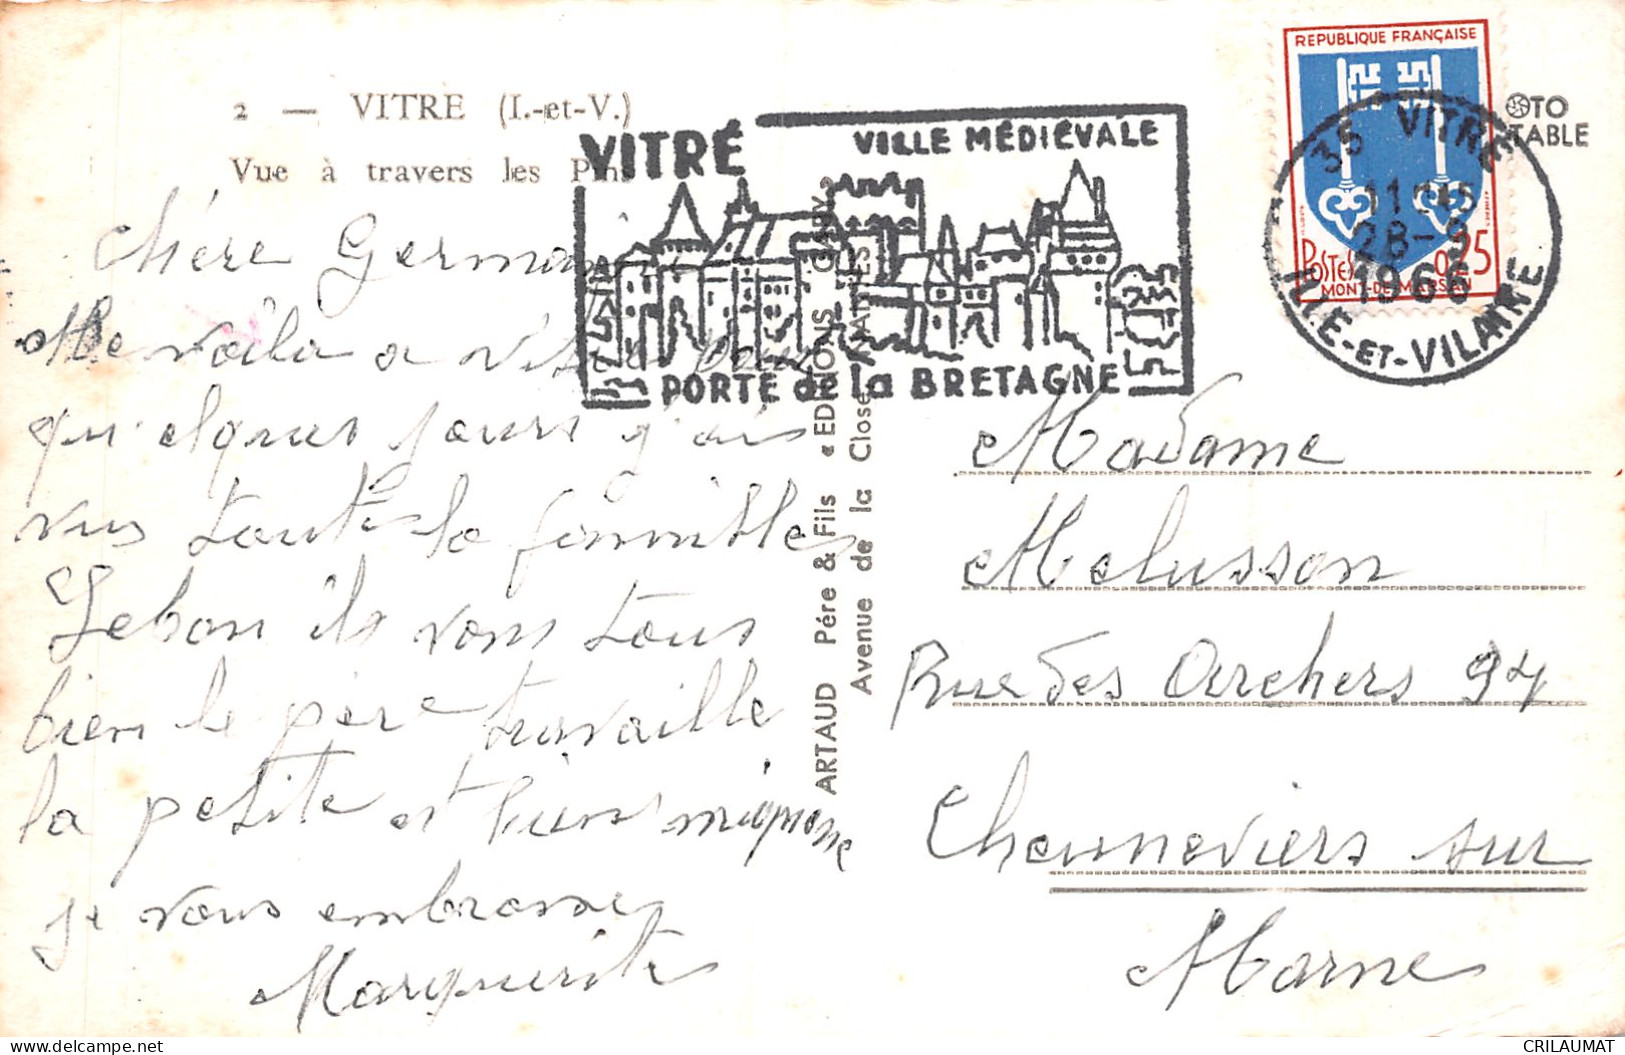 2 — VITRE (I.-et-V.)
Vue à travers les Pins
VITRÉ VILLE MÉDIÉVALE
PORTE de la BRETAGNE
REPUBLIQUE FRANÇAISE
POSTES 0,25
MONT-DE-MARSAN
35 VITRÉ
28-9
1966
ILLE-ET-VILAINE
OTO
TABLE
chére Germaine
Me voila a Vitré pour
quelques jours j'ais
vus toute la famille
Lebon ils vons tous
bien le père travaille
la petite et bien mignone
je vous embrasse
Marguerite
ARTAUD Père & Fils « EDITIONS GABY »
Avenue de la Close NANTES
Madame
Melusson
Rue des Archers 94
Chenneviers sur
Marne
CRILAUMAT